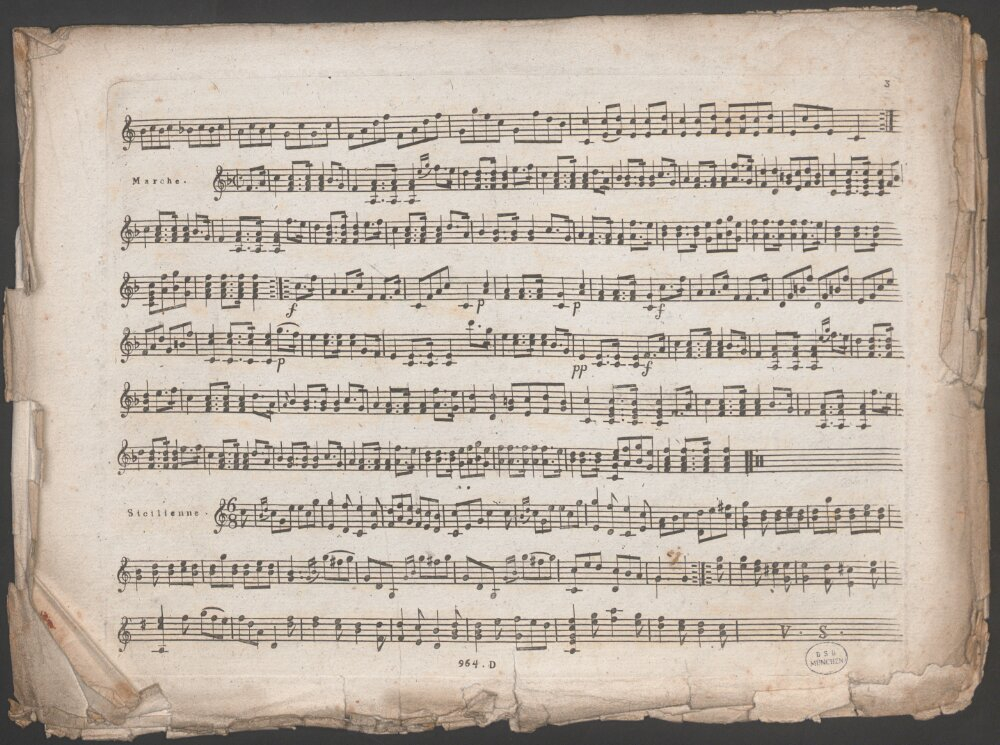 3
Marche.
f p p f
p pp f
Sicilienne.
6
8
V. S.
964. D
BSB
MÜNCHEN